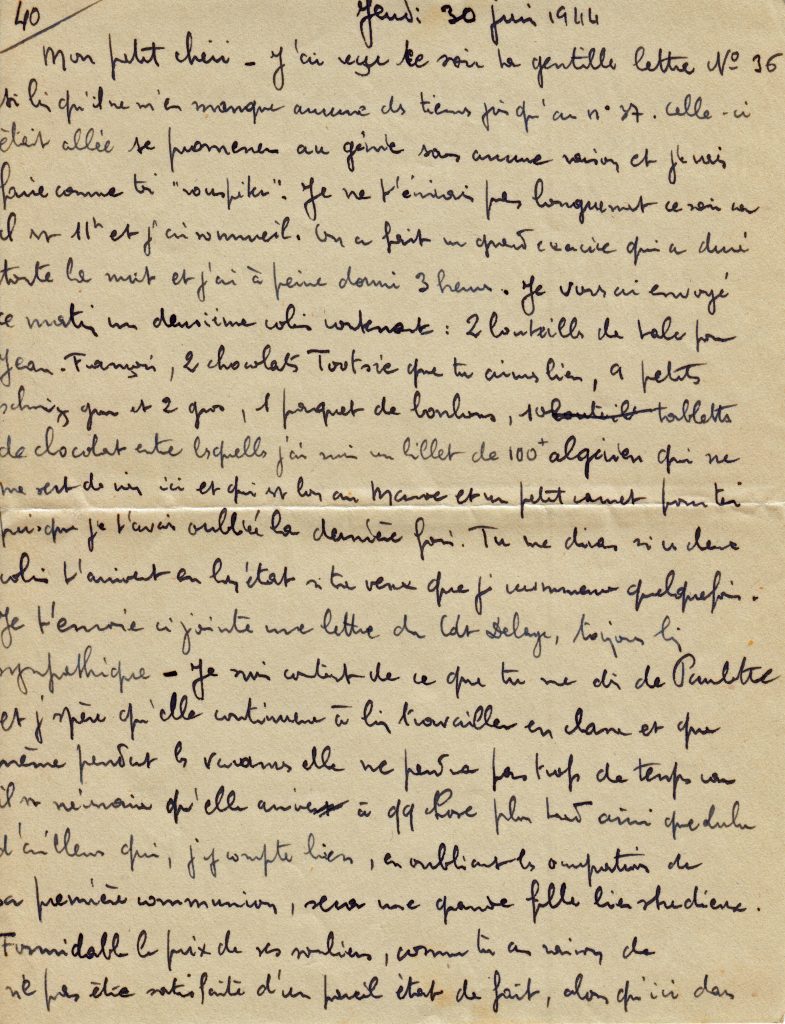 40
Jeudi 30 juin 1944
Mon petit chéri - J'ai reçu ce soir ta gentille lettre No 36
si bien qu'il ne m'en manque aucune des tiens jusqu'au n° 37. Celle-ci
était allée se promener au génie sans aucune raison et je vais
faire comme toi "rouspéter". Je ne t'écrirai pas longuement ce soir car
il est 11h et j'ai sommeil. On a fait un grand exercice qui a duré
toute la nuit et j'ai à peine dormi 3 heures. Je vous ai envoyé
ce matin un deuxième colis contenant : 2 bouteilles de talc pour
Jean-François, 2 chocolats Tootsie que tu aimes bien, 9 petits
gum et 2 gros, 1 paquet de bonbons, 10 tablettes
de chocolat entre lesquelles j'ai mis un billet de 100 algérien qui ne
me sert de rien ici et qui est bon au Maroc et un petit carnet pour toi
puisque je t'avais oubliée la dernière fois. Tu me diras si ces deux
colis t'arrivent en bon état si tu veux que je recommence quelquefois.
Je t'envoie ci jointe une lettre du Cdt Delage, toujours bien
sympathique - Je suis content de ce que tu me dis de Paulette
et j'espère qu'elle continuera à bien travailler en classe et que
même pendant les vacances elle ne perdra pas trop de temps car
il est nécessaire qu'elle arrive à qq chose plus tard ainsi que Lulu
d'ailleurs qui, j'y compte bien, en oubliant les occupations de
sa première communion, sera une grande fille bien studieuse.
Formidable le prix de ses souliers, comme tu as raison de
ne pas être satisfaite d'un pareil état de fait, alors qu'ici dans